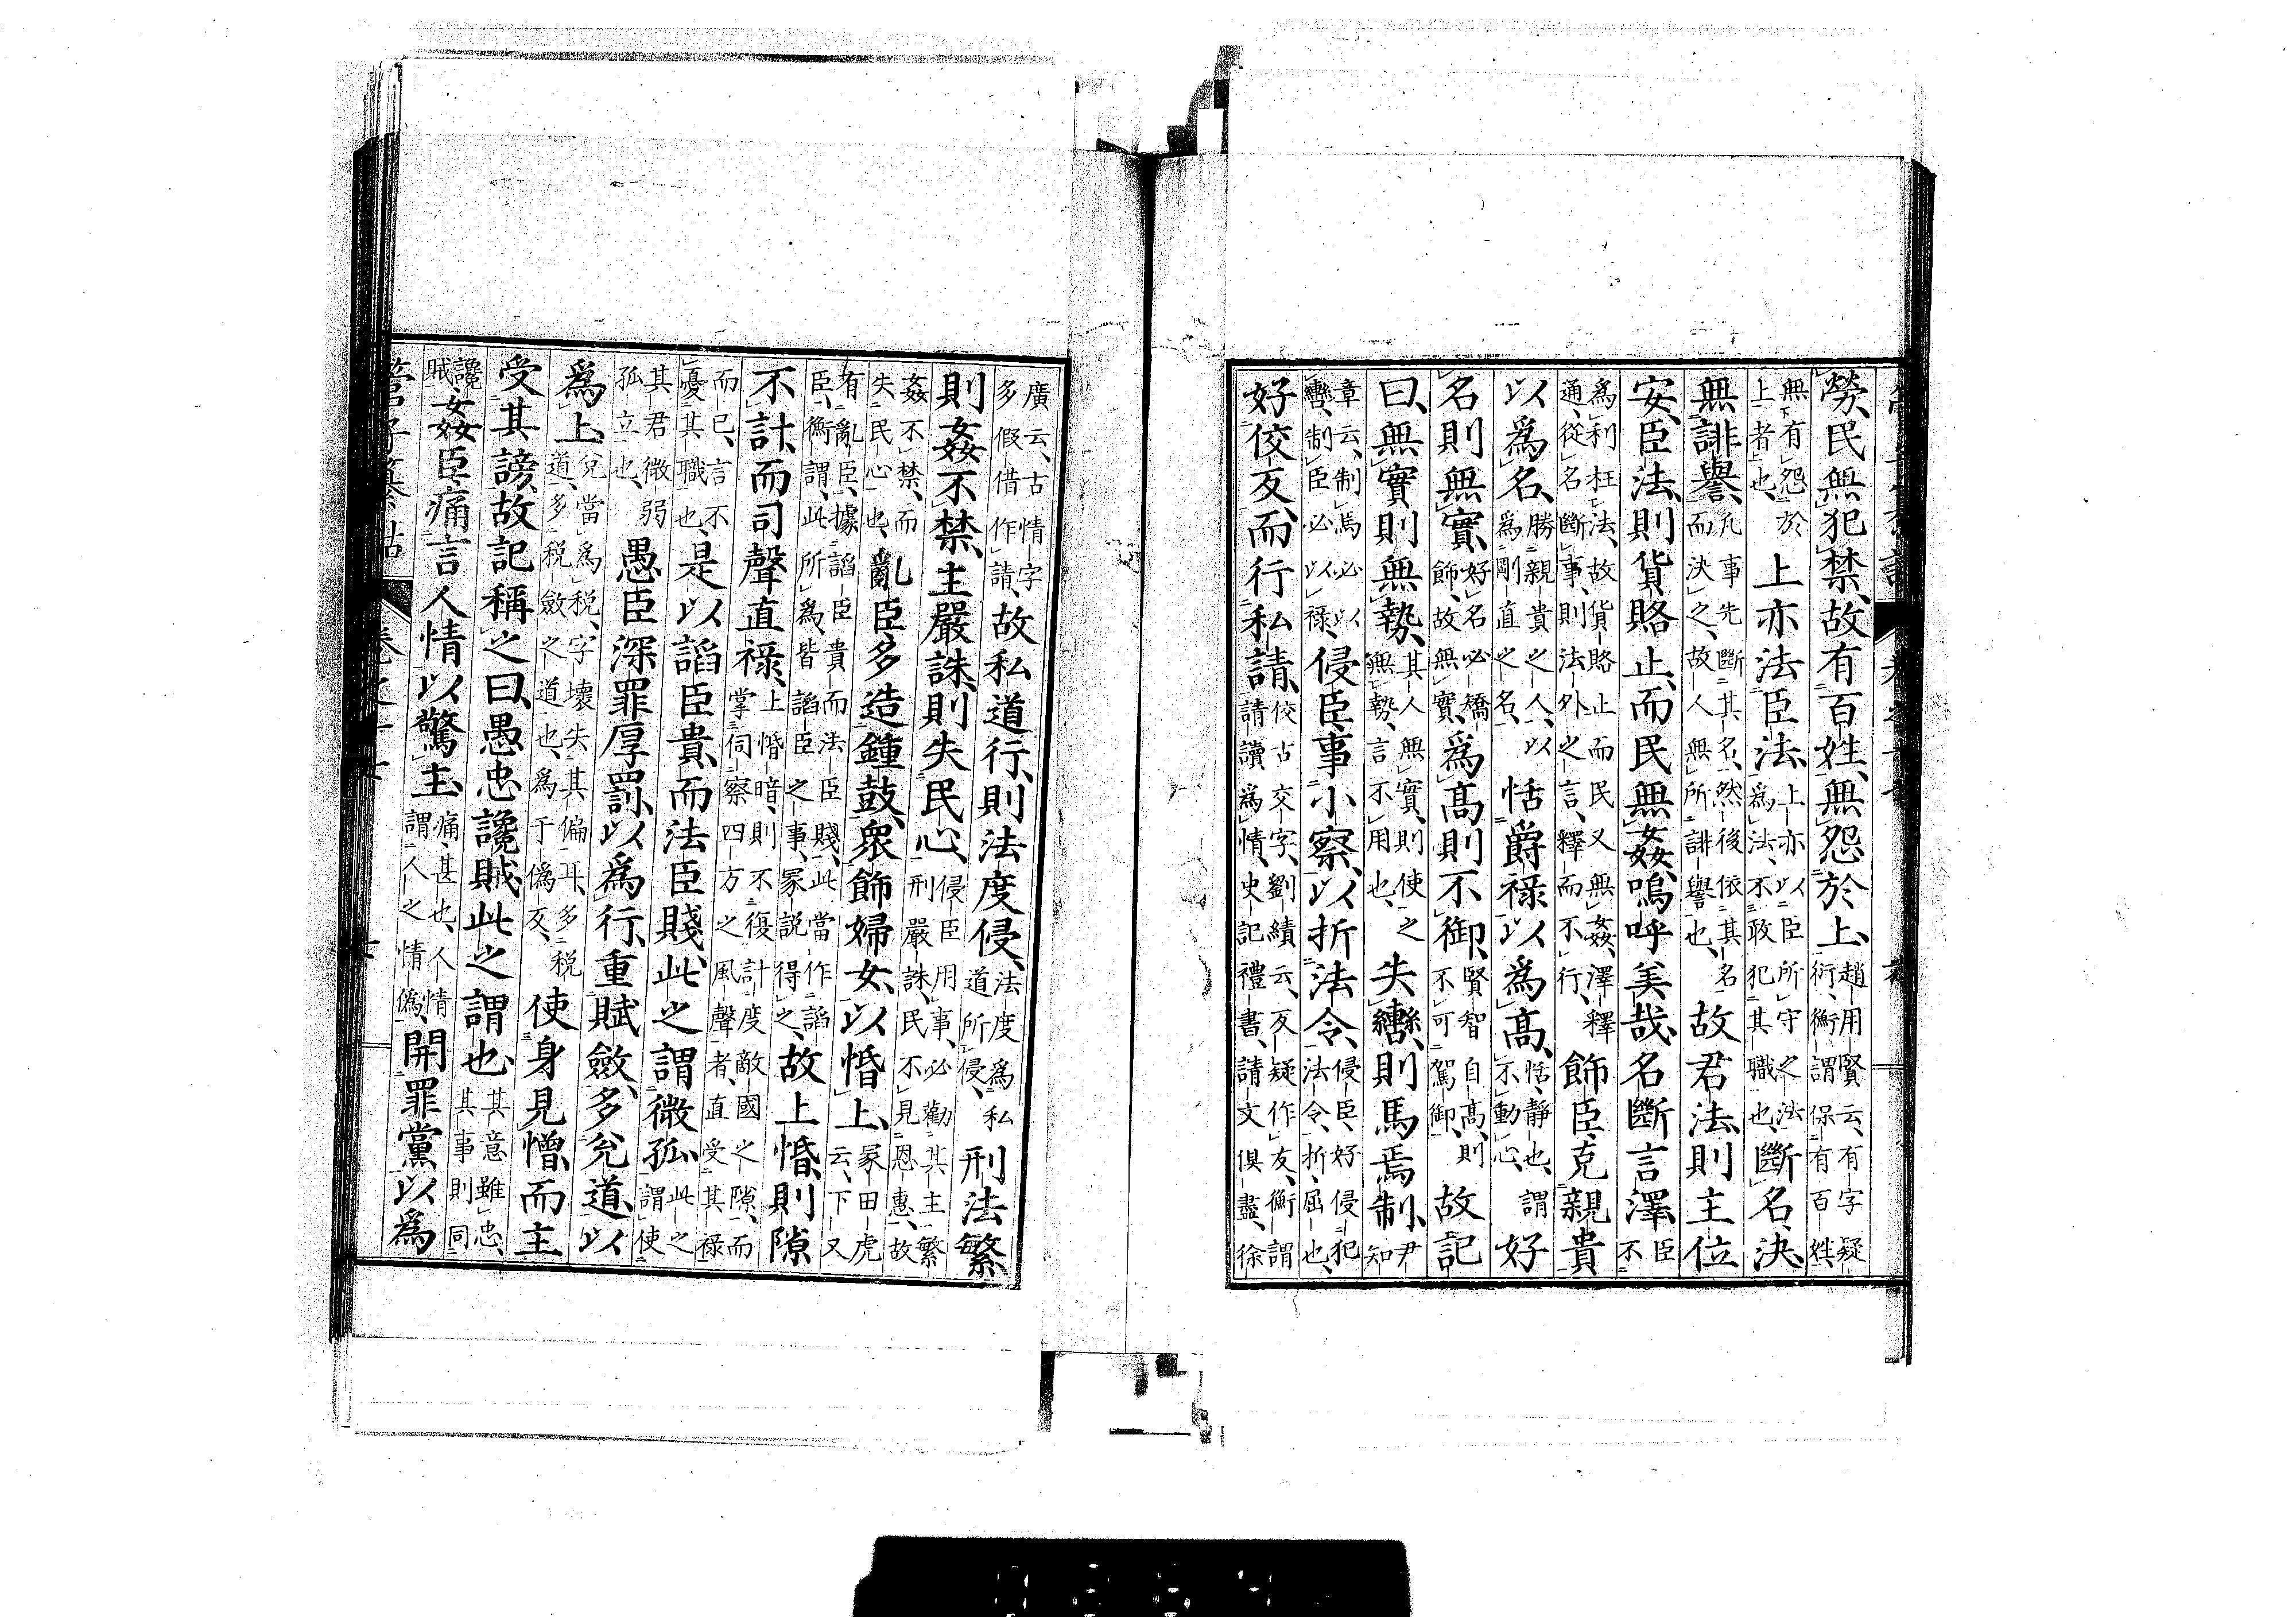 勞、民無犯禁、故有百姓、無怨於上、趙用賢云、有字疑
衍、衡謂保有百姓、
無有怨於
上者也、
上亦法臣法、上亦以臣所守之法
為法、不敢犯其職也、
斷名決、
無誹譽、凡事先斷其名、然後依其名
而決之、故人無所誹譽也、
故君法、則主位
安、臣法、則貨賂止、而民無姦、嗚呼美哉、名斷言澤、臣
不
為利枉法、故貨賂止而民又無姦、澤釋
通、從名斷事、則法外之言、釋而不行、
飾臣、克親貴
以爲名、勝親貴之人、以
爲剛直之名、
恬爵祿以爲高、恬、靜也、謂
不動心、
好
名則無實、好名必矯
飾、故無實、
爲高則不御、賢智自高、則
不可駕御、
故記
曰、無實則無勢、其人無實、則使之
無勢、言不用也、
失轡、則馬焉制、尹
知
章云、制焉必以
轡、制臣必以祿、
侵臣、事小察、以折法令、侵臣、好侵犯
法令、折、屈也、
好佼友、而行私請、佼古交字、劉績云、友疑作友、衡謂
請讀爲情、史記禮書、請文俱盡、徐
廣云、古情字
多假借作請、
故私道行、則法度侵、法度爲私
道所侵、
刑法繁
則姦不禁、主嚴誅、則失民心、侵臣用事、必勸其主繁
刑嚴誅、民不見恩惠、故
姦不禁、而
失民心也、
亂臣多造鍾鼓、衆飾婦女、以惛上、冢田虎
云、下又
有亂臣、據諂臣貴而法臣賤、此當作諂
臣、衡謂、此所爲、皆諂臣之事、冢説得之、
故上惛、則隙
不計、而司聲直祿、上惛暗、則不復計度敵國之隙、而
掌伺察四方之風聲者、直受其祿
而已、言不
憂其職也、
是以諂臣貴、而法臣賤、此之謂微孤、此之
謂使
其君微弱
孤立也、
愚臣深罪厚罰、以爲行、重賦斂、多兊道、以
爲上、兊當爲税、字壞失其偏耳、多税
道、多税斂之道也、爲于僞反、
使身見憎、而主
受其謗、故記稱之曰、愚忠讒賊、此之謂也、其意雖忠、
其事則同
讒
賊、
姦臣、痛言人情以驚主、痛、甚也、人情
謂人之情僞、
開罪黨以爲
管子纂詁
卷之十七